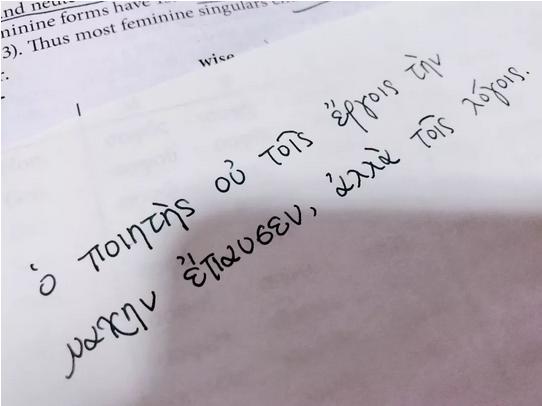 minine forms have
3). Thus most feminine singulars
wise
ὁ ποιητὴς οὐ τοῖς ἔργοις τὴν
μαχην ἔπαυσεν, ἀλλὰ τοῖς λόγοις.